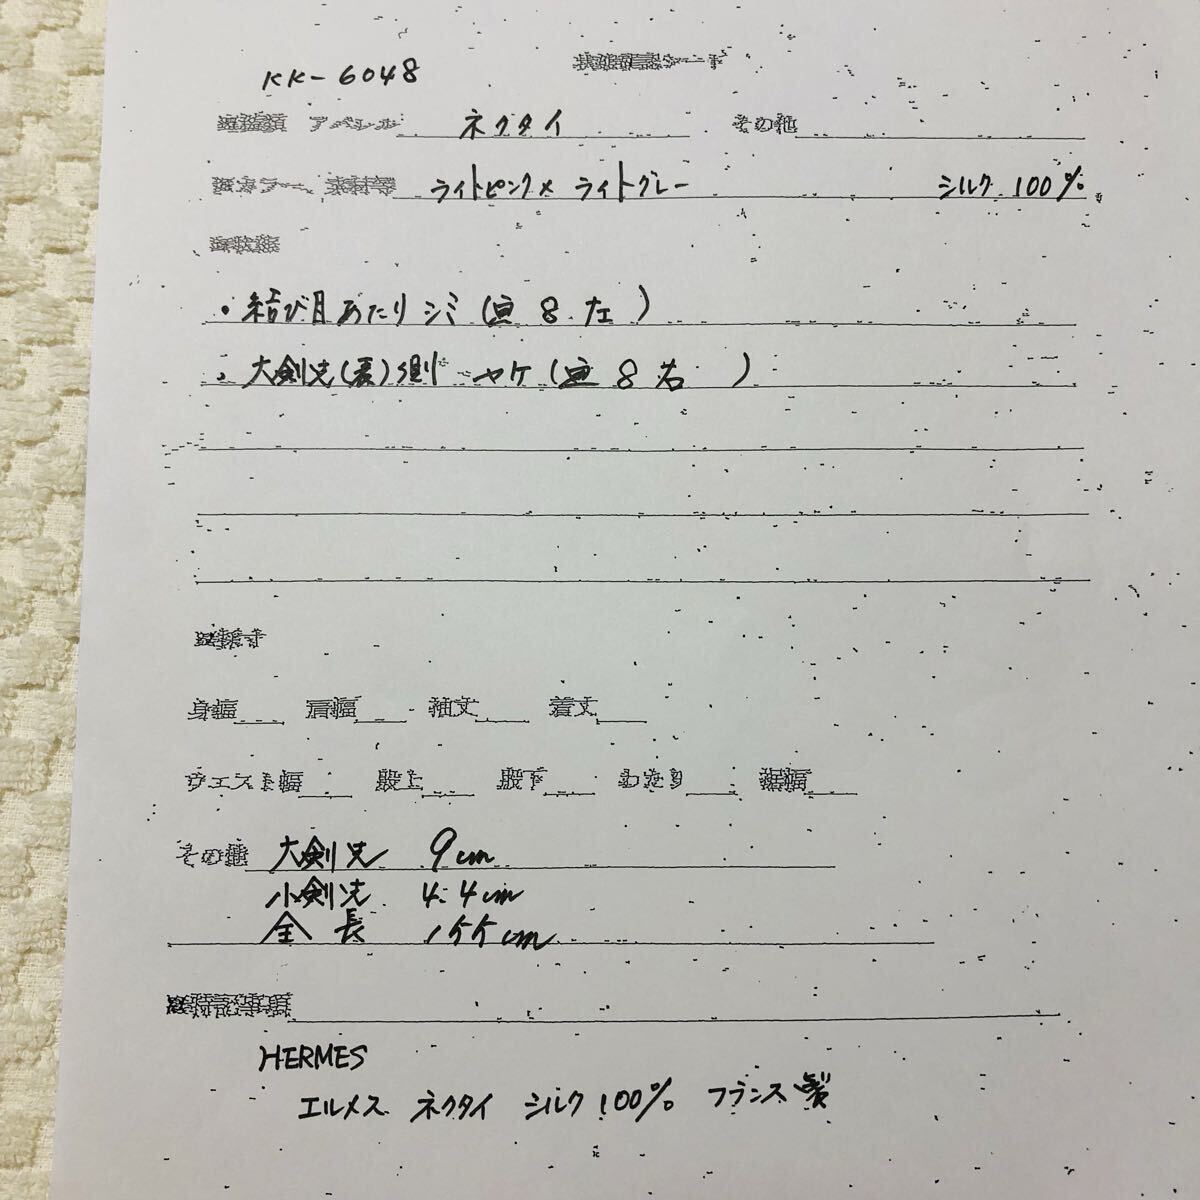 KK-6048
アパレル ネクタイ その他
カラー、素材等 ライトピンク×ライトグレー シルク 100%
・結び目あたりシミ ( 8 左 )
・大剣先(裏)側 ヤケ ( 8 右 )
身幅 肩幅 袖丈 着丈
ウエスト幅 股上 股下 わたり 裾幅
その他 大剣先 9cm
小剣先 4.4cm
全長 cm
特記事項
HERMES
エルメス ネクタイ シルク100% フランス製